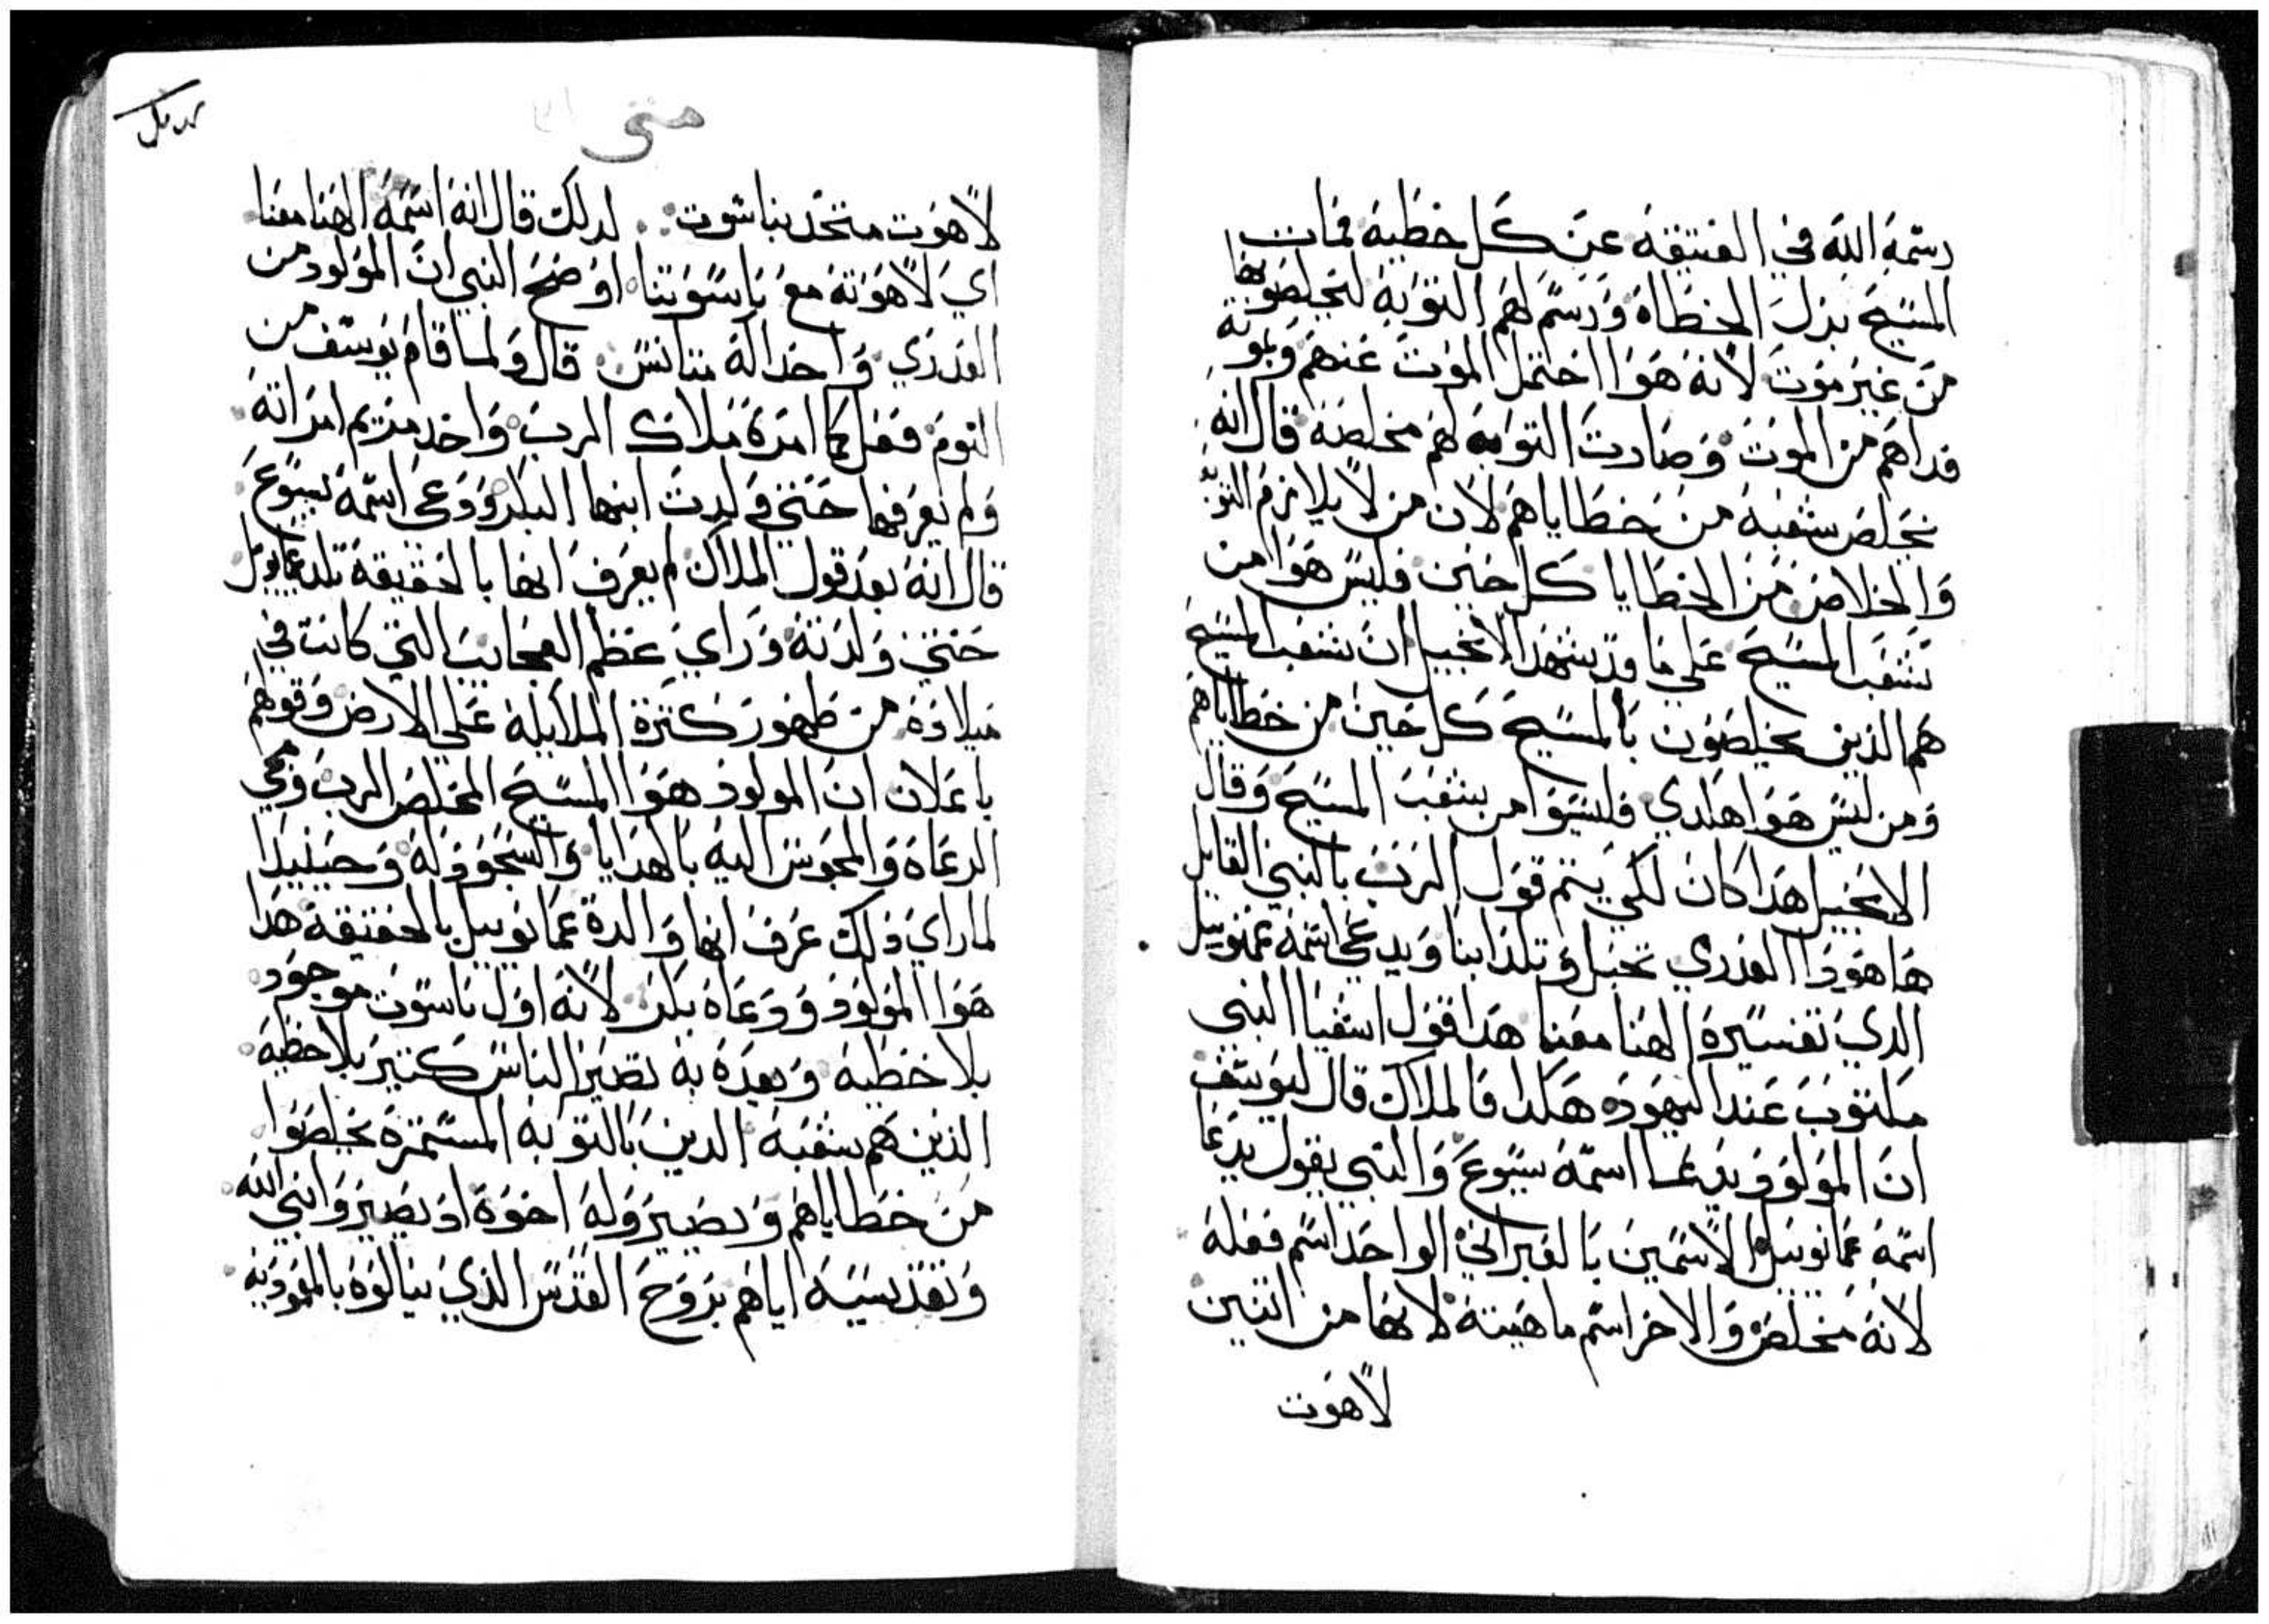 رسمه الله في العتيقه عن كل خطيه فمات
المسيح بدل الخطاه ورسم لهم التوبه ليخلصو بها
من غير موت لانه هوا احتمل الموت عنهم وبموته
فداهم من الموت وصارت التوبه لهم مخلصه قال انه
يخلص شعبه من خطاياهم لان من لا يلازم التوبه
والخلاص من الخطايا كل حين فليس هوا من
شعب المسيح علي ما قد يشهد الانجيل ان شعب المسيح
هم الذين يخلصون بالمسيح كل حين من خطاياهم
ومن ليس هوا هكدي فليسوا من شعب المسيح وقال
الانجيل هدا كان لكي يتم قول الرب بالنبي القايل
ها هودا العدري تحبل وتلد ابنا ويدعي اسمه عمنوييل
الدي تفسيره الهنا معنا هدا قول اشعيا النبي
مكتوب عند اليهود هكدا فالملاك قال ليوسف
ان المولود يدعا اسمه يسوع والنبي يقول يدعا
اسمه عمانوييل الاسمين بالعبراني الواحد اسم فعله
لانه مخلص والاخر اسم ماهيته لانها من اتنين
لاهوت
متي
لاهوت متحد بناسوت لدلك قال انه اسمه الهنا معنا
اي لاهوته مع ناسوتنا اوضح النبي ان المولود من
العدري واحد اله متانس قال ولما قام يوسف من
النوم فعل كما امره ملاك الرب واخد مريم امراته
ولم يعرفها حتي ولدت ابنها البكر ودعي اسمه يسوع
قال انه بعد قول الملاك لم يعرف انها بالحقيقه تلد عمانويل
حتي ولدته وراي عظم العجايب التي كانت في
ميلاده من ظهور كترة الملايكة علي الارض وقولهم
باعلان ان المولود هوا المسيح المخلص الرب ومجي
الرعاه والمجوس اليه بالهدايا والسجود له وحينيدا
لما راي دلك عرف انها والدة عمانوييل بالحقيقه هدا
هوا المولود ودعاه بكر لانه اول ناسوت موجود
بلا خطيه وبعده به تصير الناس كتير بلا خطيه
الذين هم شعبه الدين بالتوبه المستمره يخلصوا
من خطاياهم ويصيرو له اخوه اد يصيرو ابني الله
وتقديسه اياهم بروح القدس الذي ينالوه بالمعموديه